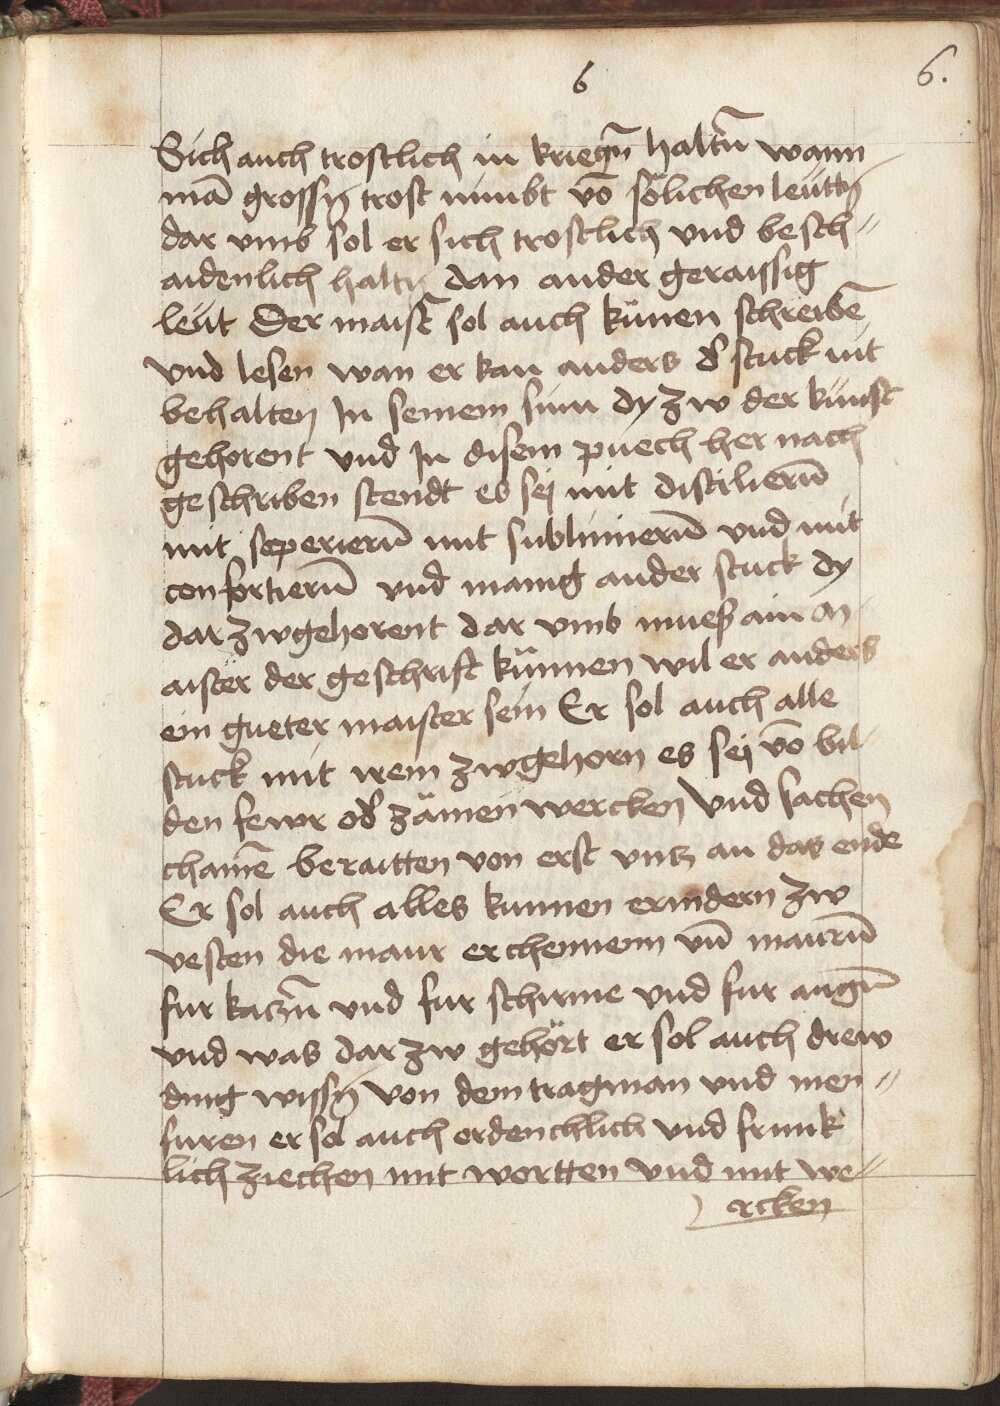 6 6.
Sich auch trostlich in kriegñ haltñ wann
mā grossñ trost nimbt vō sölichen leüttñ
dar vmb sol er sich trostlich vnd besch=
aidenlich haltñ dan ander geraissig
leüt Der maistr̄ sol auch künen schreibē
vnd lesen wan er kan anders d' stuck nit
behalten In seinem sinn dy zw der kunst
gehorent vnd In disem puech her nach
geschriben stendt es sej mit distilierñ
mit seperierñ mit sublimierñ vnd mit
confortierñ vnd manig ander stuck dy
dar zwgehorent dar vmb mueß ain M-
aister der geschrift künnen wil er anders
ein gueter maister sein Er sol auch alle
stuck mit irem zwgehorn es sej vō bil-
den fewr od' zämen wercken vnd sachen
chainē beraitten von erst vntz an das ende
Er sol auch alles kunnen erindern zw
vesten die maur erchennenn vñ maurñ
fur katzñ vnd fur schirme vnd fur augñ
vnd was dar zw gehört er sol auch drew
ding wissñ von dem tragman vnd men=
suren er sol auch ordenchlich vnd frunk
lich ziechen mit wortten vnd mit we=
rcken